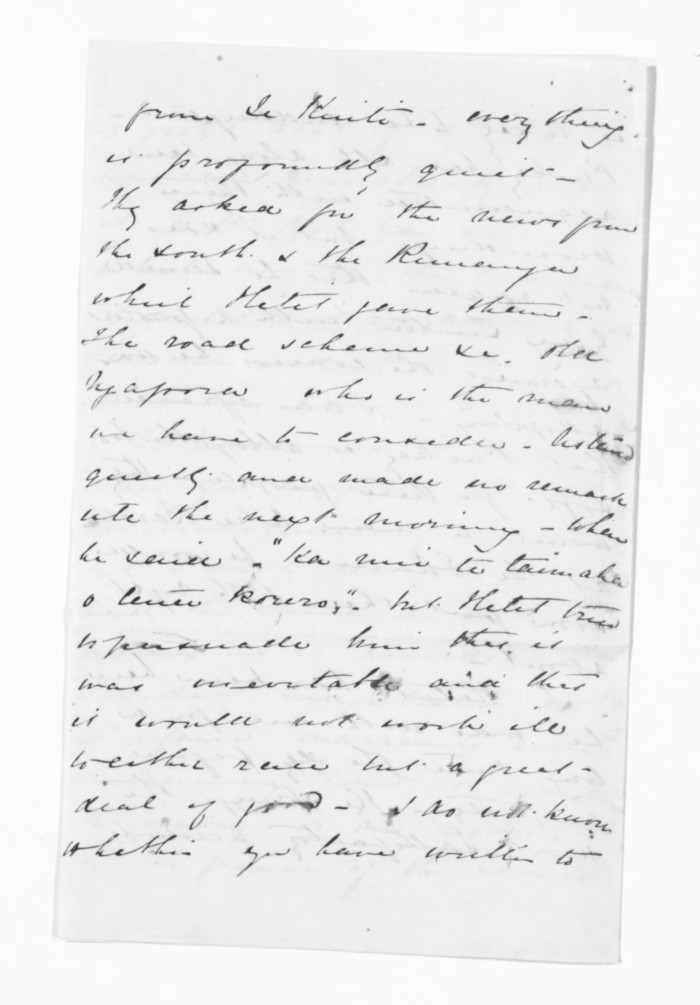 from Te Kuiti - everything
is profoundly quiet -
They asked for the news from
the south & the
which Hetet gave them -
The road scheme &c. Old
who is the man
we have to consider - listened
quietly and made no remark
until the next morning - when
he said - "Ka nui te taimaha
o tena korero," - but Hetet tried
to persuade him that it
was inevitable and that
it would not work ill
to either race but a great
deal of good - I do not know
whether you have written to